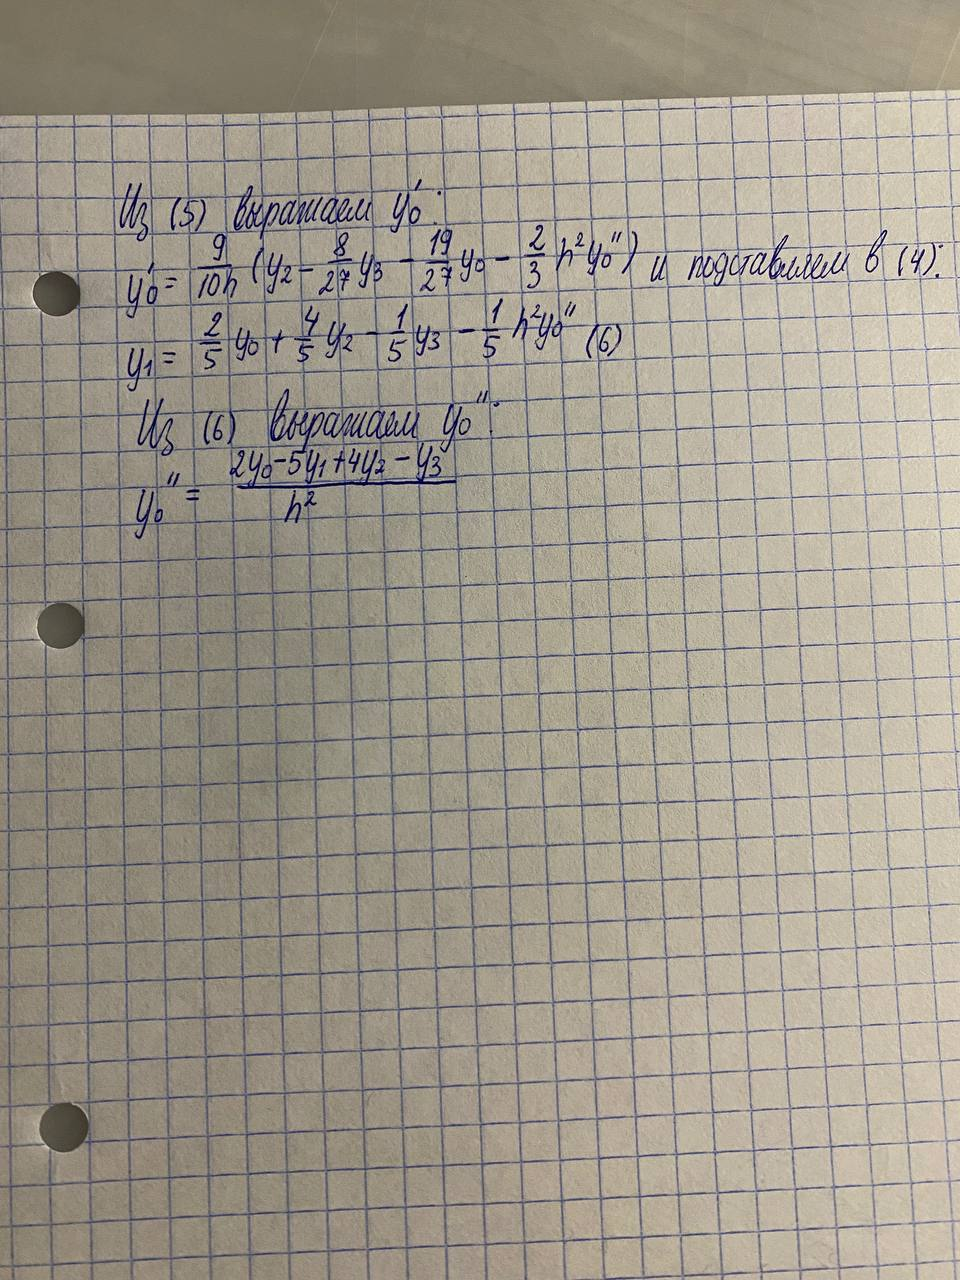 Из (5) выражаем y₀':
y₀' = 9/10h (y₂ - 8/27 y₃ - 19/27 y₀ - 2/3 h² y₀'') и подставляем в (4):
y₁ = 2/5 y₀ + 4/5 y₂ - 1/5 y₃ - 1/5 h² y₀'' (6)
Из (6) выражаем y₀'':
y₀'' = (2y₀ - 5y₁ + 4y₂ - y₃)/h²